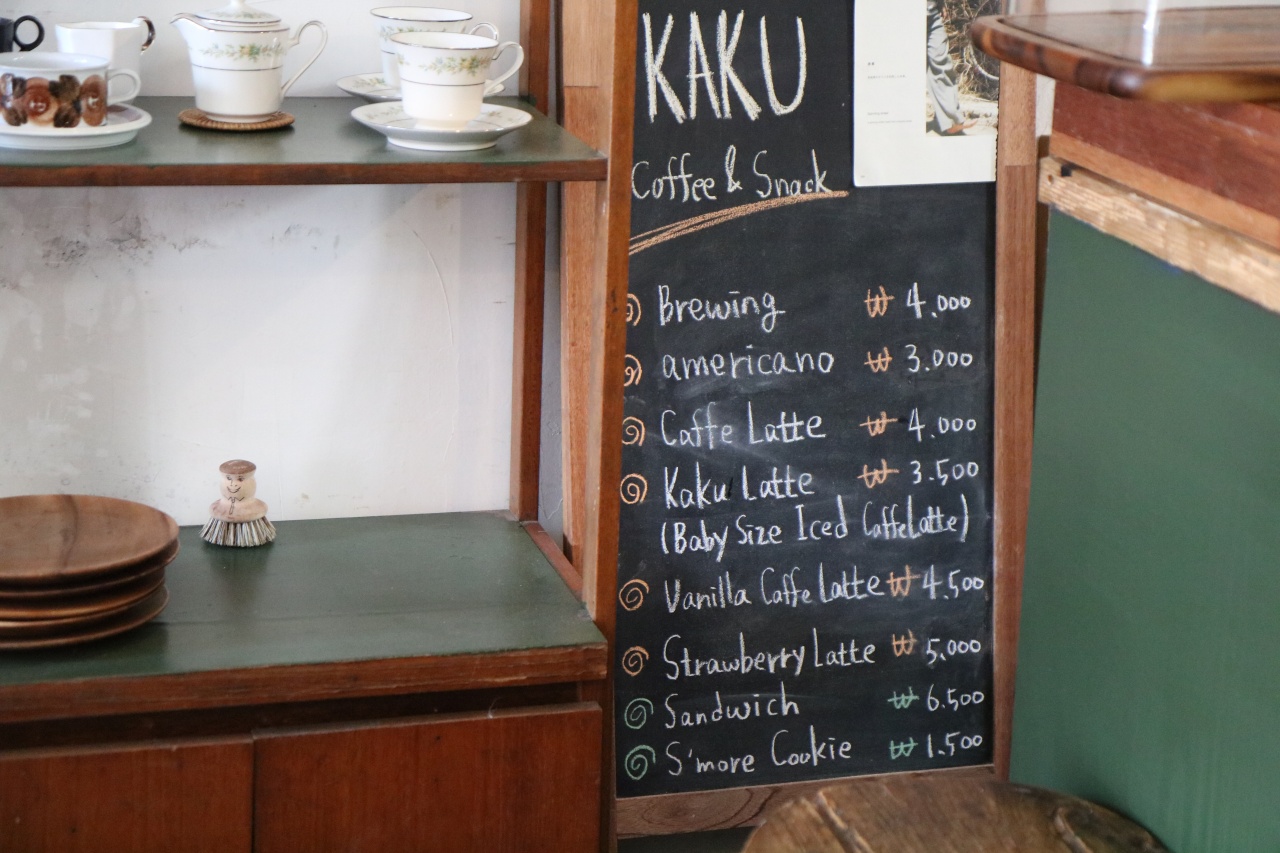 KAKU
Coffee & Snack
Brewing ₩ 4.000
americano ₩ 3.000
Caffe Latte ₩ 4.000
Kaku Latte ₩ 3.500
(Baby Size Iced CaffeLatte)
Vanilla Caffe Latte ₩ 4.500
Strawberry Latte ₩ 5.000
Sandwich ₩ 6.500
S'more Cookie ₩ 1.500